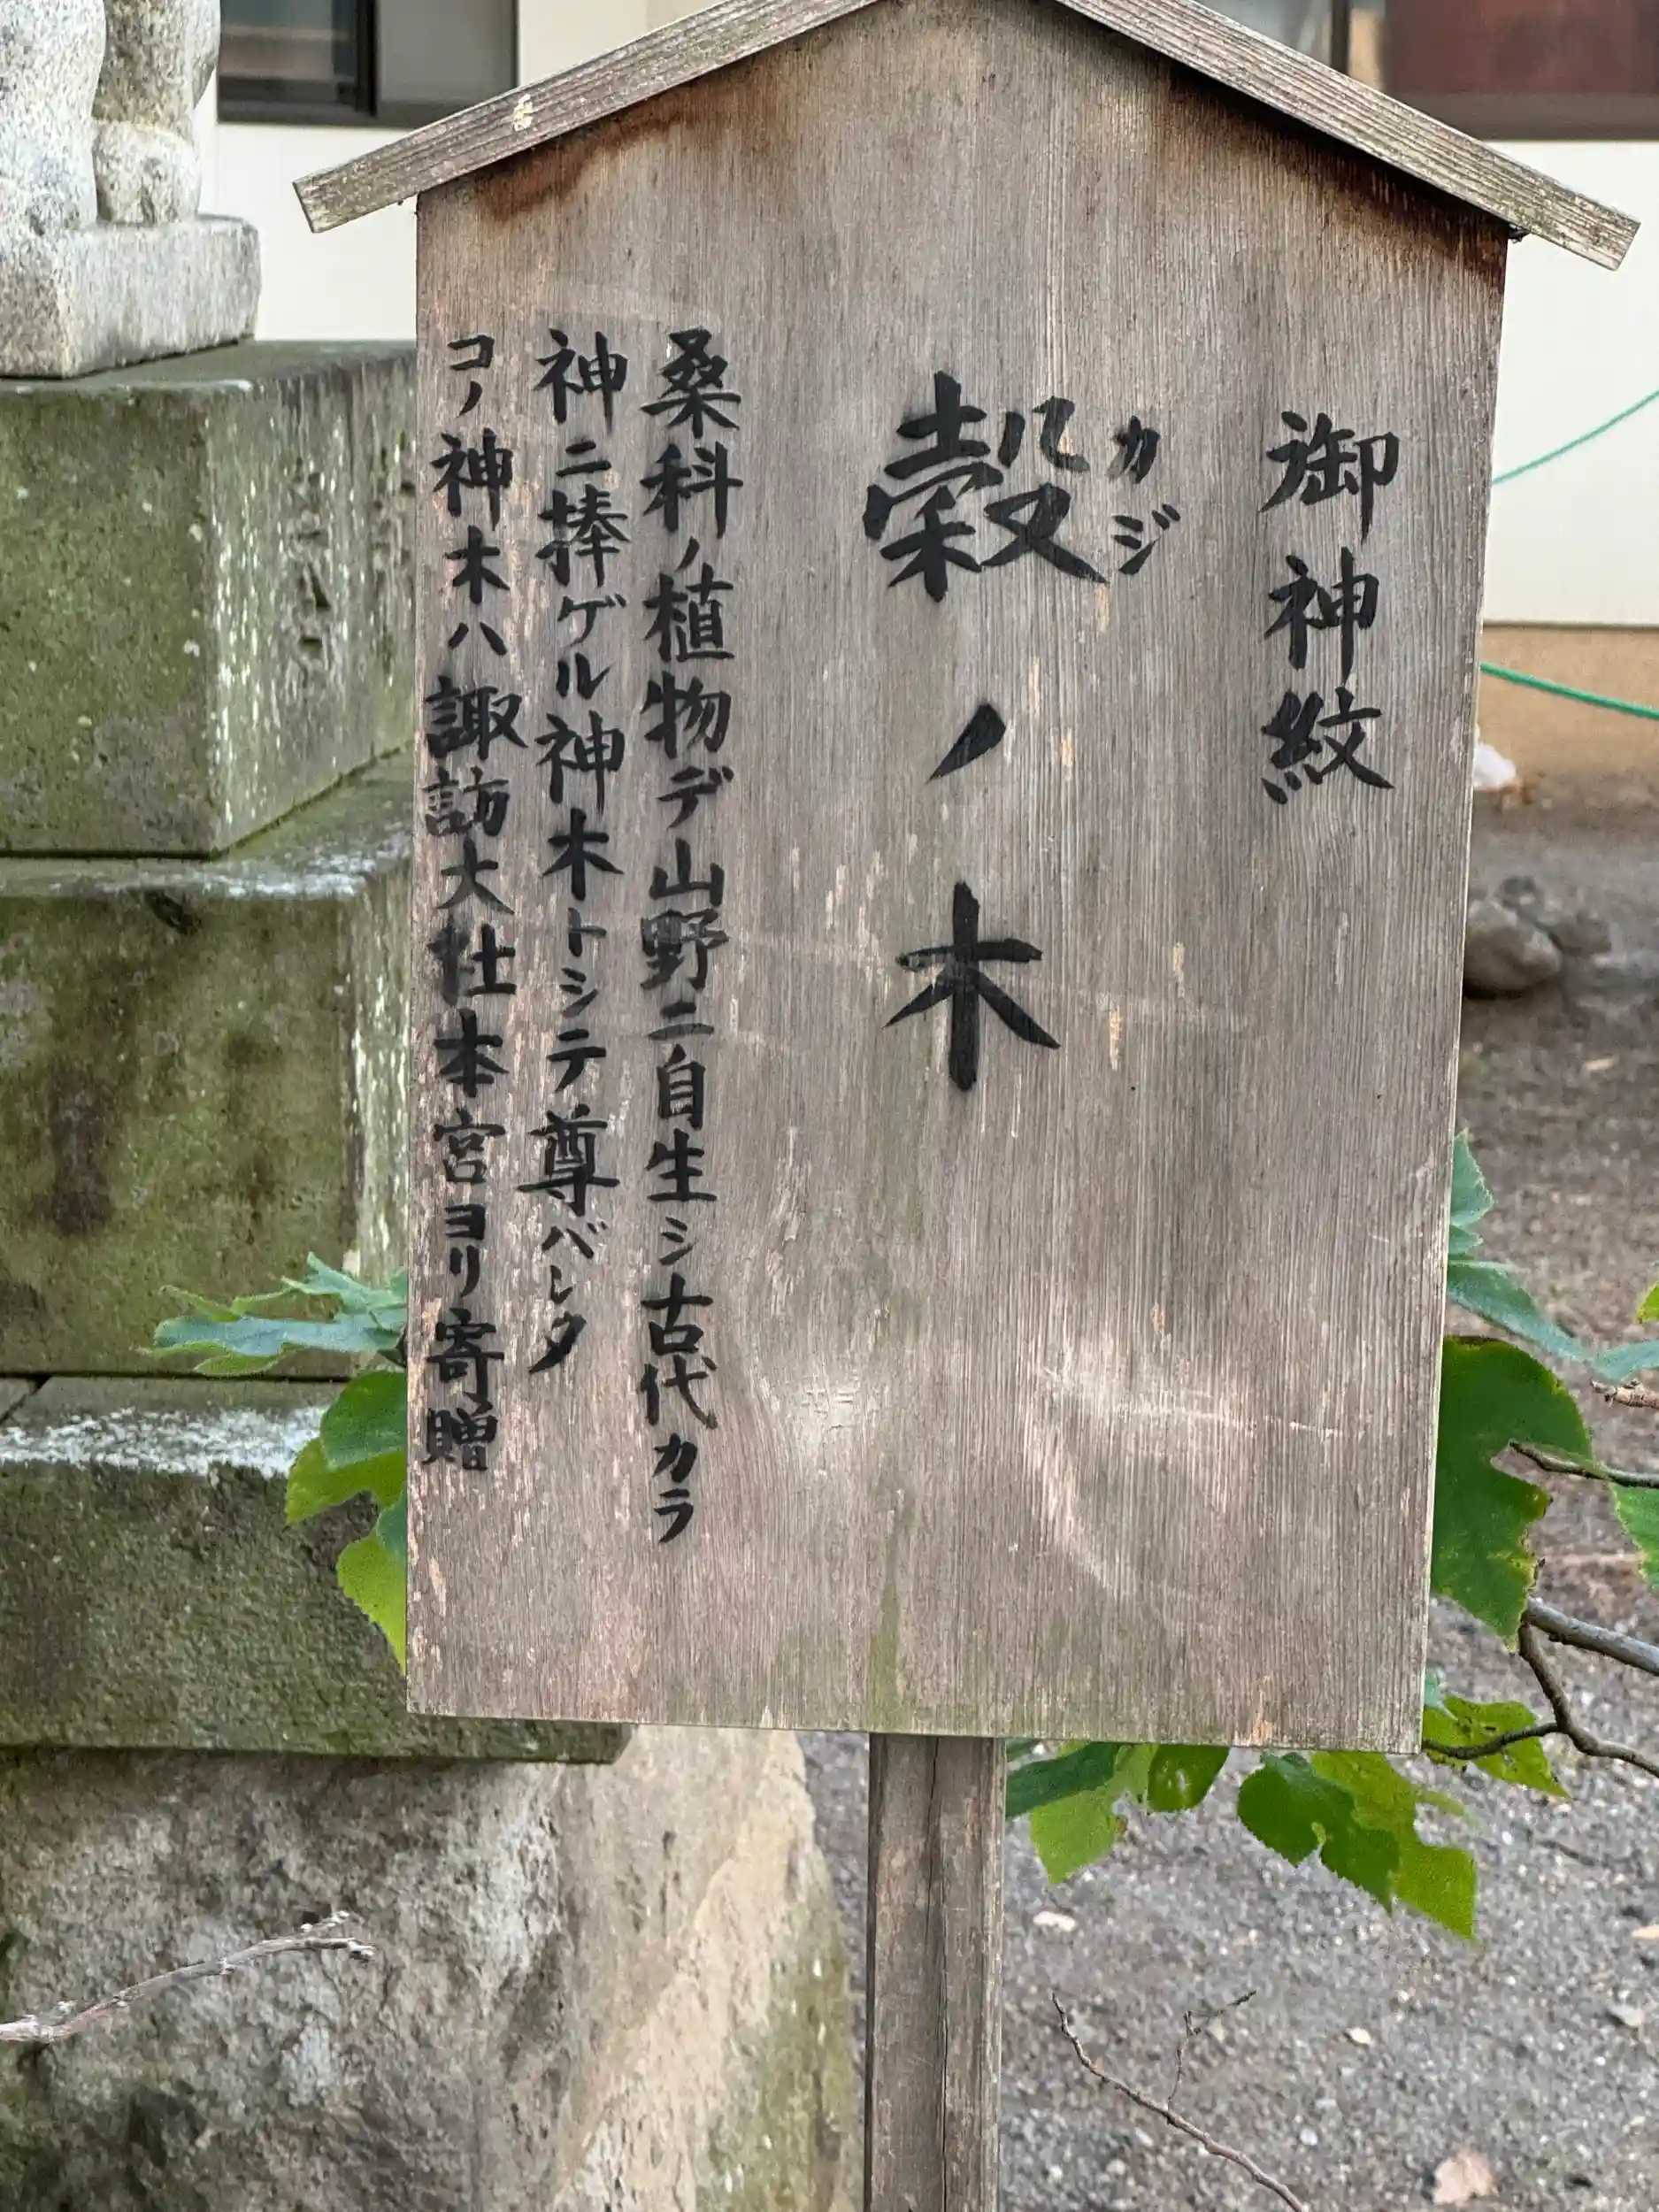 御神紋
榖ノ木
カジ
桑科ノ植物デ山野ニ自生シ古代カラ
神ニ捧ゲル神木トシテ尊バレタ
コノ神木ハ諏訪大社本宮ヨリ寄贈